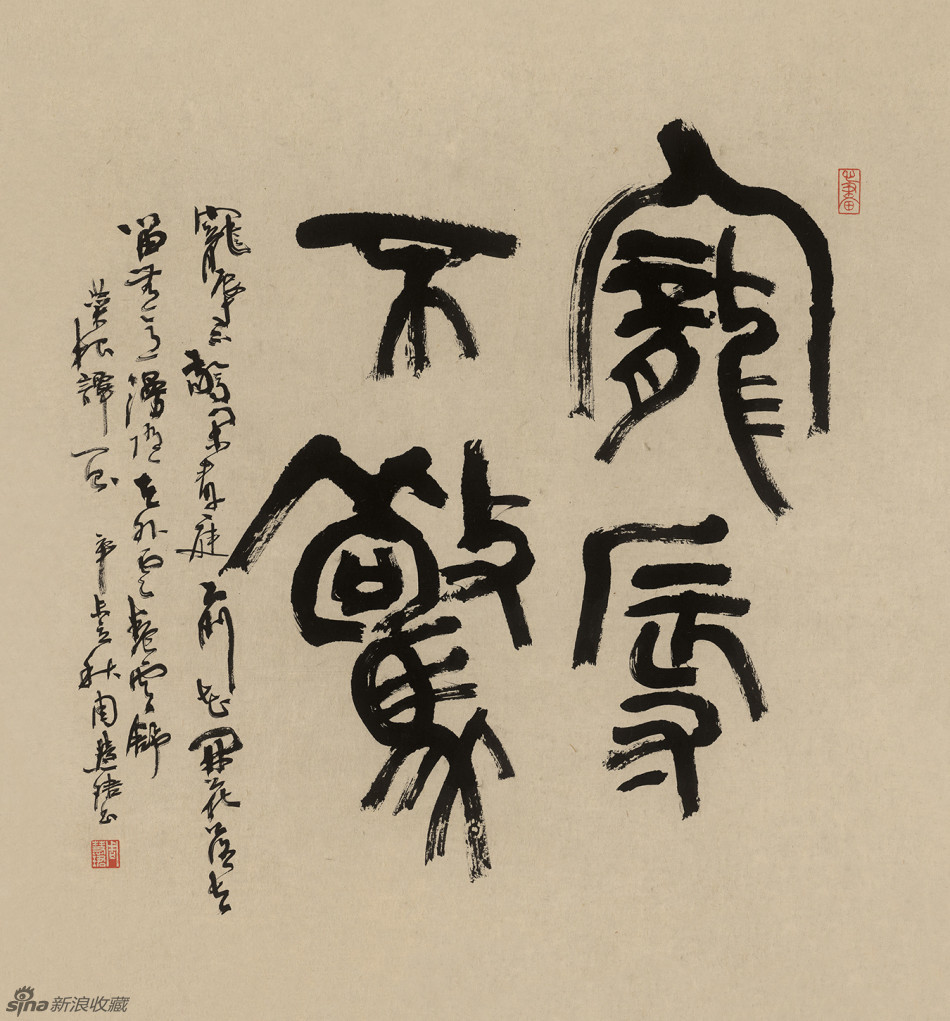 寵辱
不驚
寵辱不驚閑看庭前花開花落去
留無意漫隨天外雲卷雲舒
菜根譚句 秋周慧珺書
sina新浪收藏